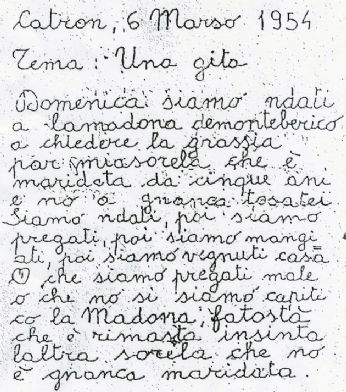 Catron, 6 Marso 1954
Tema: Una gita
Domenica siamo ndati
a lamadona demonteberico
a chiedere la grassia
par miasorela che è
maridata da cinque ani
e no à gnanca tosatei
Siamo ndati, poi siamo
pregati, poi siamo mangi
ati, poi siamo vegnuti casa
O che siamo pregati male
o che no si siamo capiti
co la Madona, fatostà
che è rimasta insinta
laltra sorela che no
è gnanca maridata.